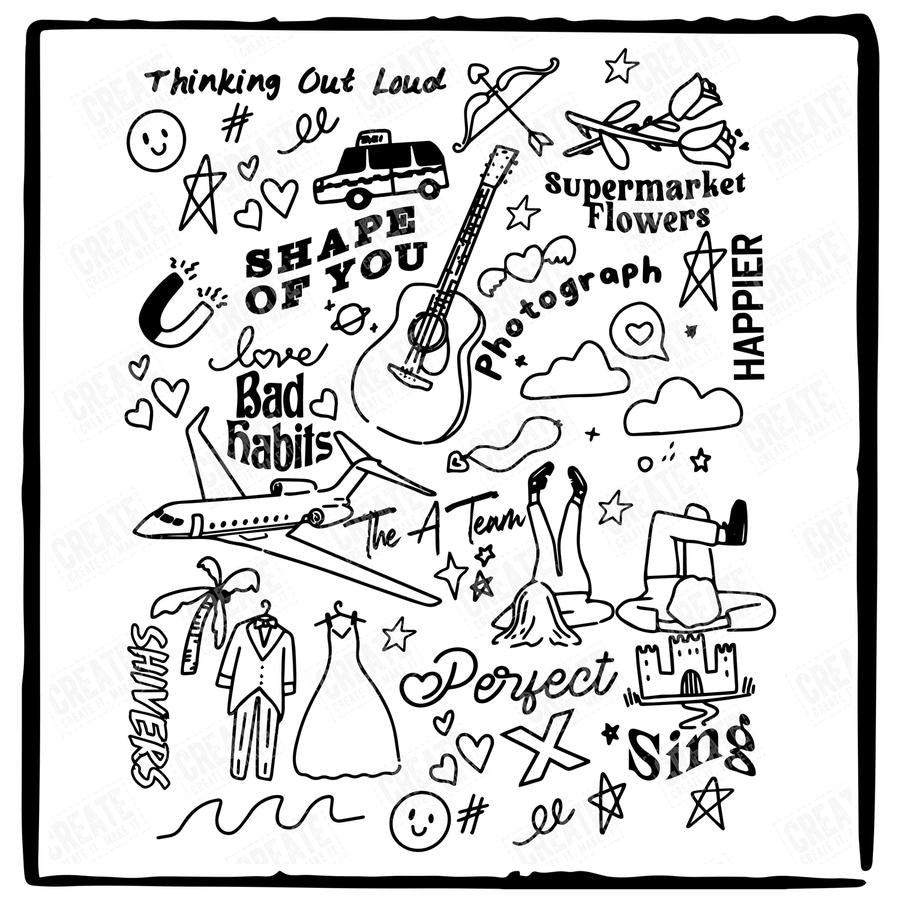 Thinking Out Loud
#
ee
TAXI
Supermarket
Flowers
SHAPE
OF YOU
Photograph
HAPPIER
love
Bad
Habits
The A Team
SHIVERS
Perfect
X
Sing
#
ee
CREATE
CREATE IT. MAKE IT.